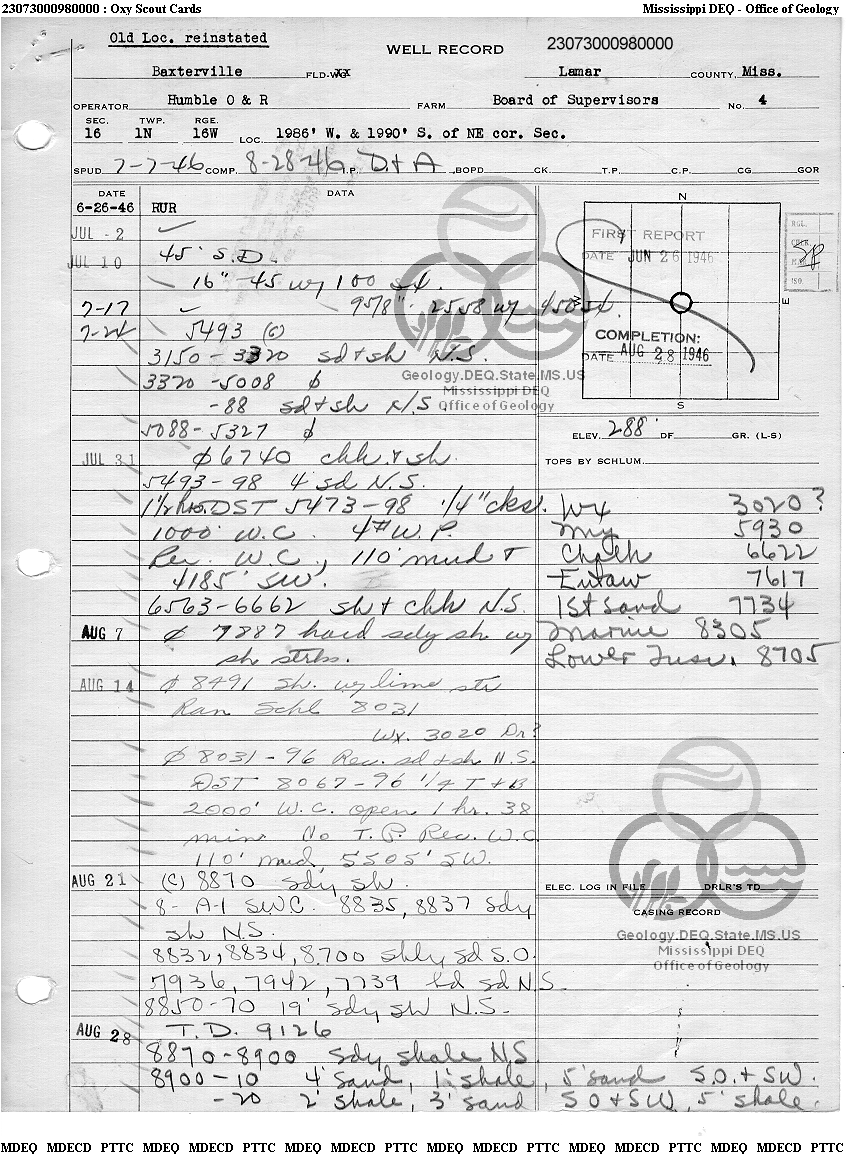 23073000980000 : Oxy Scout Cards Mississippi DEQ - Office of Geology
Old Loc. reinstated
WELL RECORD 23073000980000
Baxterville FLD-WG xx Lamar COUNTY, Miss.
OPERATOR Humble O & R FARM Board of Supervisors No. 4
SEC. TWP. RGE.
16 1N 16W LOC. 1986' W. & 1990' S. of NE cor. Sec.
SPUD 7-7-46 COMP. 8-28-46 I.P. D+A BOPD CK. T.P. C.P. CG GOR
DATE DATA
6-26-46 RUR
JUL - 2
JUL 10 45' S.D.
16" - 45 w/ 100 sx.
7-17 9 5/8" - 2558 w/ 450 sx.
7-24 5493 (C)
3150 - 3320 sd + sh N.S.
3320 - 5008 ϕ
-88 sd + sh N/S
5088 - 5327 ϕ
JUL 31 ϕ 6740 chk. + sh.
5493-98 4' sd N.S.
1 1/2 hrs. DST 5473-98 1/4" cks.
1000' W.C. 4# W.P.
Rec. W.C., 110' mud +
4185' SW.
6563-6662 sh + chk N.S.
AUG 7 ϕ 7887 hard sdy sh w/
sh strks.
AUG 14 ϕ 8491 sh. w/ lime str
Ran Schl 8031
Wx. 3020 Dr?
ϕ 8031-96 Rec. sd + sh N.S.
DST 8067-96 1/4 T + B
2000' W.C. open 1 hr. 38
mins No T.P. Rec. W.C.
110' mud, 5505' SW.
AUG 21 (C) 8870 sdy sh.
8-A-1 S.W.C. 8835, 8837 sdy
sh N.S.
8832, 8834, 8700 shly sd S.O.
7936, 7942, 7739 hd sd N.S.
8850-70 19' sdy sh N.S.
AUG 28 T.D. 9126
8870-8900 sdy shale N.S.
8900-10 4' sand, 1' shale, 5' sand S.O. + SW.
-20 2' shale, 3' sand SO + SW, 5' shale.
N
FIRST REPORT
DATE JUN 26 1946
W E
COMPLETION:
DATE AUG 28 1946
S
RGL.
CHER.
ISO.
ELEV. 288' DF GR. (L-S)
TOPS BY SCHLUM.
Wx 3020?
Mwy 5930
Chalk 6622
Eutaw 7617
1st Sand 7734
Marine 8305
Lower Tusc. 8705
ELEC. LOG IN FILE DRLR'S TD
CASING RECORD
Geology.DEQ.State.MS.US
Mississippi DEQ
Office of Geology
Geology.DEQ.State.MS.US
Mississippi DEQ
Office of Geology
MDEQ MDECD PTTC MDEQ MDECD PTTC MDEQ MDECD PTTC MDEQ MDECD PTTC MDEQ MDECD PTTC MDEQ MDECD PTTC